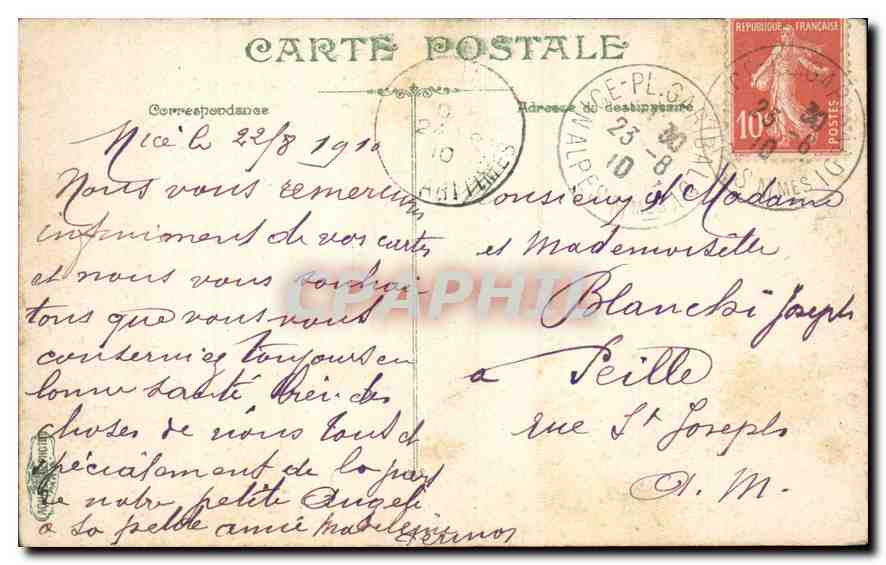 CARTE POSTALE
Correspondance
Adresse du destinataire
REPUBLIQUE FRANÇAISE
10
POSTES
NICE-PL. GARIBALDI
23 -8
10
Nice le 22/8 1910
Nous vous remercions
infiniment de vos cartes
et nous vous souhai
tons que vous vous
conserviez toujours en
bonne santé bien des
choses de nous tous et
spécialement de la part
de notre petite Angele
a sa petite amie Madeleine
Monsieur et Madame
et Mademoiselle
Blanchi Joseph
a Peille
rue St Joseph
A. M.
CPAPHIL